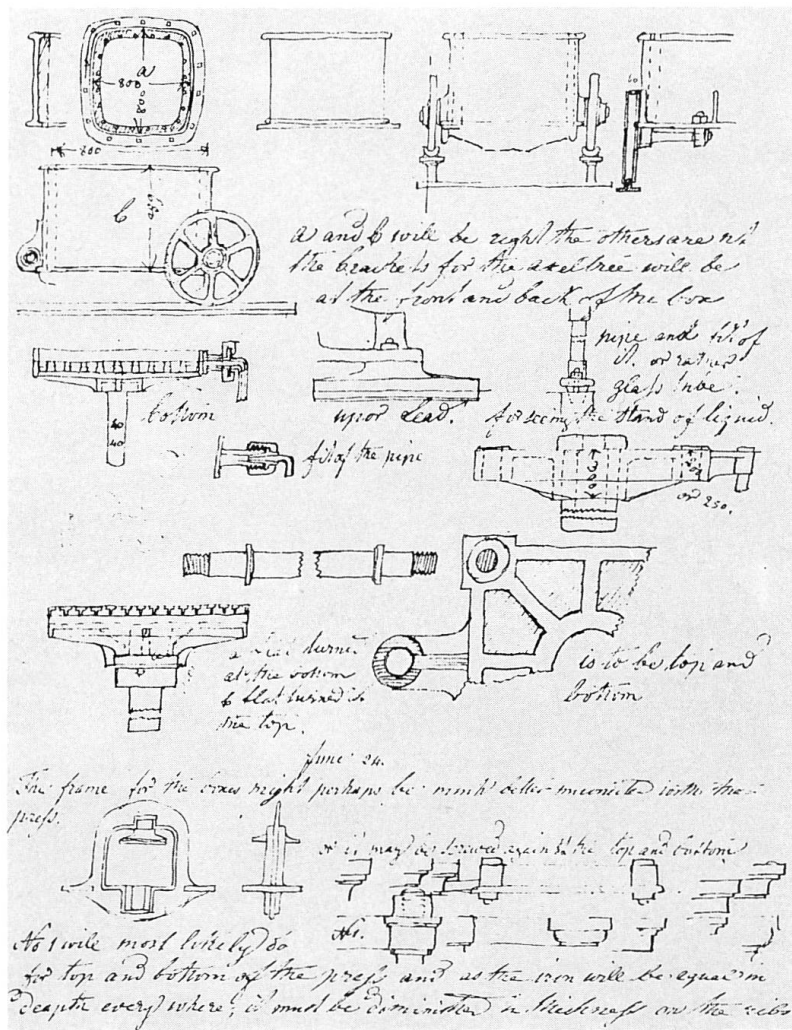 a
800
800
800
b
650
10
a and b will be right the others are not
the brackets for the axeltree will be
at the front and back of the box
pipe and fit of
it or rather
glass tube.
for seeing the stand of liquid.
bottom
upor Lead.
40
40
fit of the pipe
300
or 250.
a flat turned
at the bottom
b flat turned is
the top.
is to be top and
bottom
June 24.
The frame for the boxes might perhaps be much better with the
press.
or it may be screwed against the top and bottom
No 1.
No 1 will most likely do
for top and bottom of the press and as the iron will be equal in
deapth every where, it must be diminished in thickness on the ribs